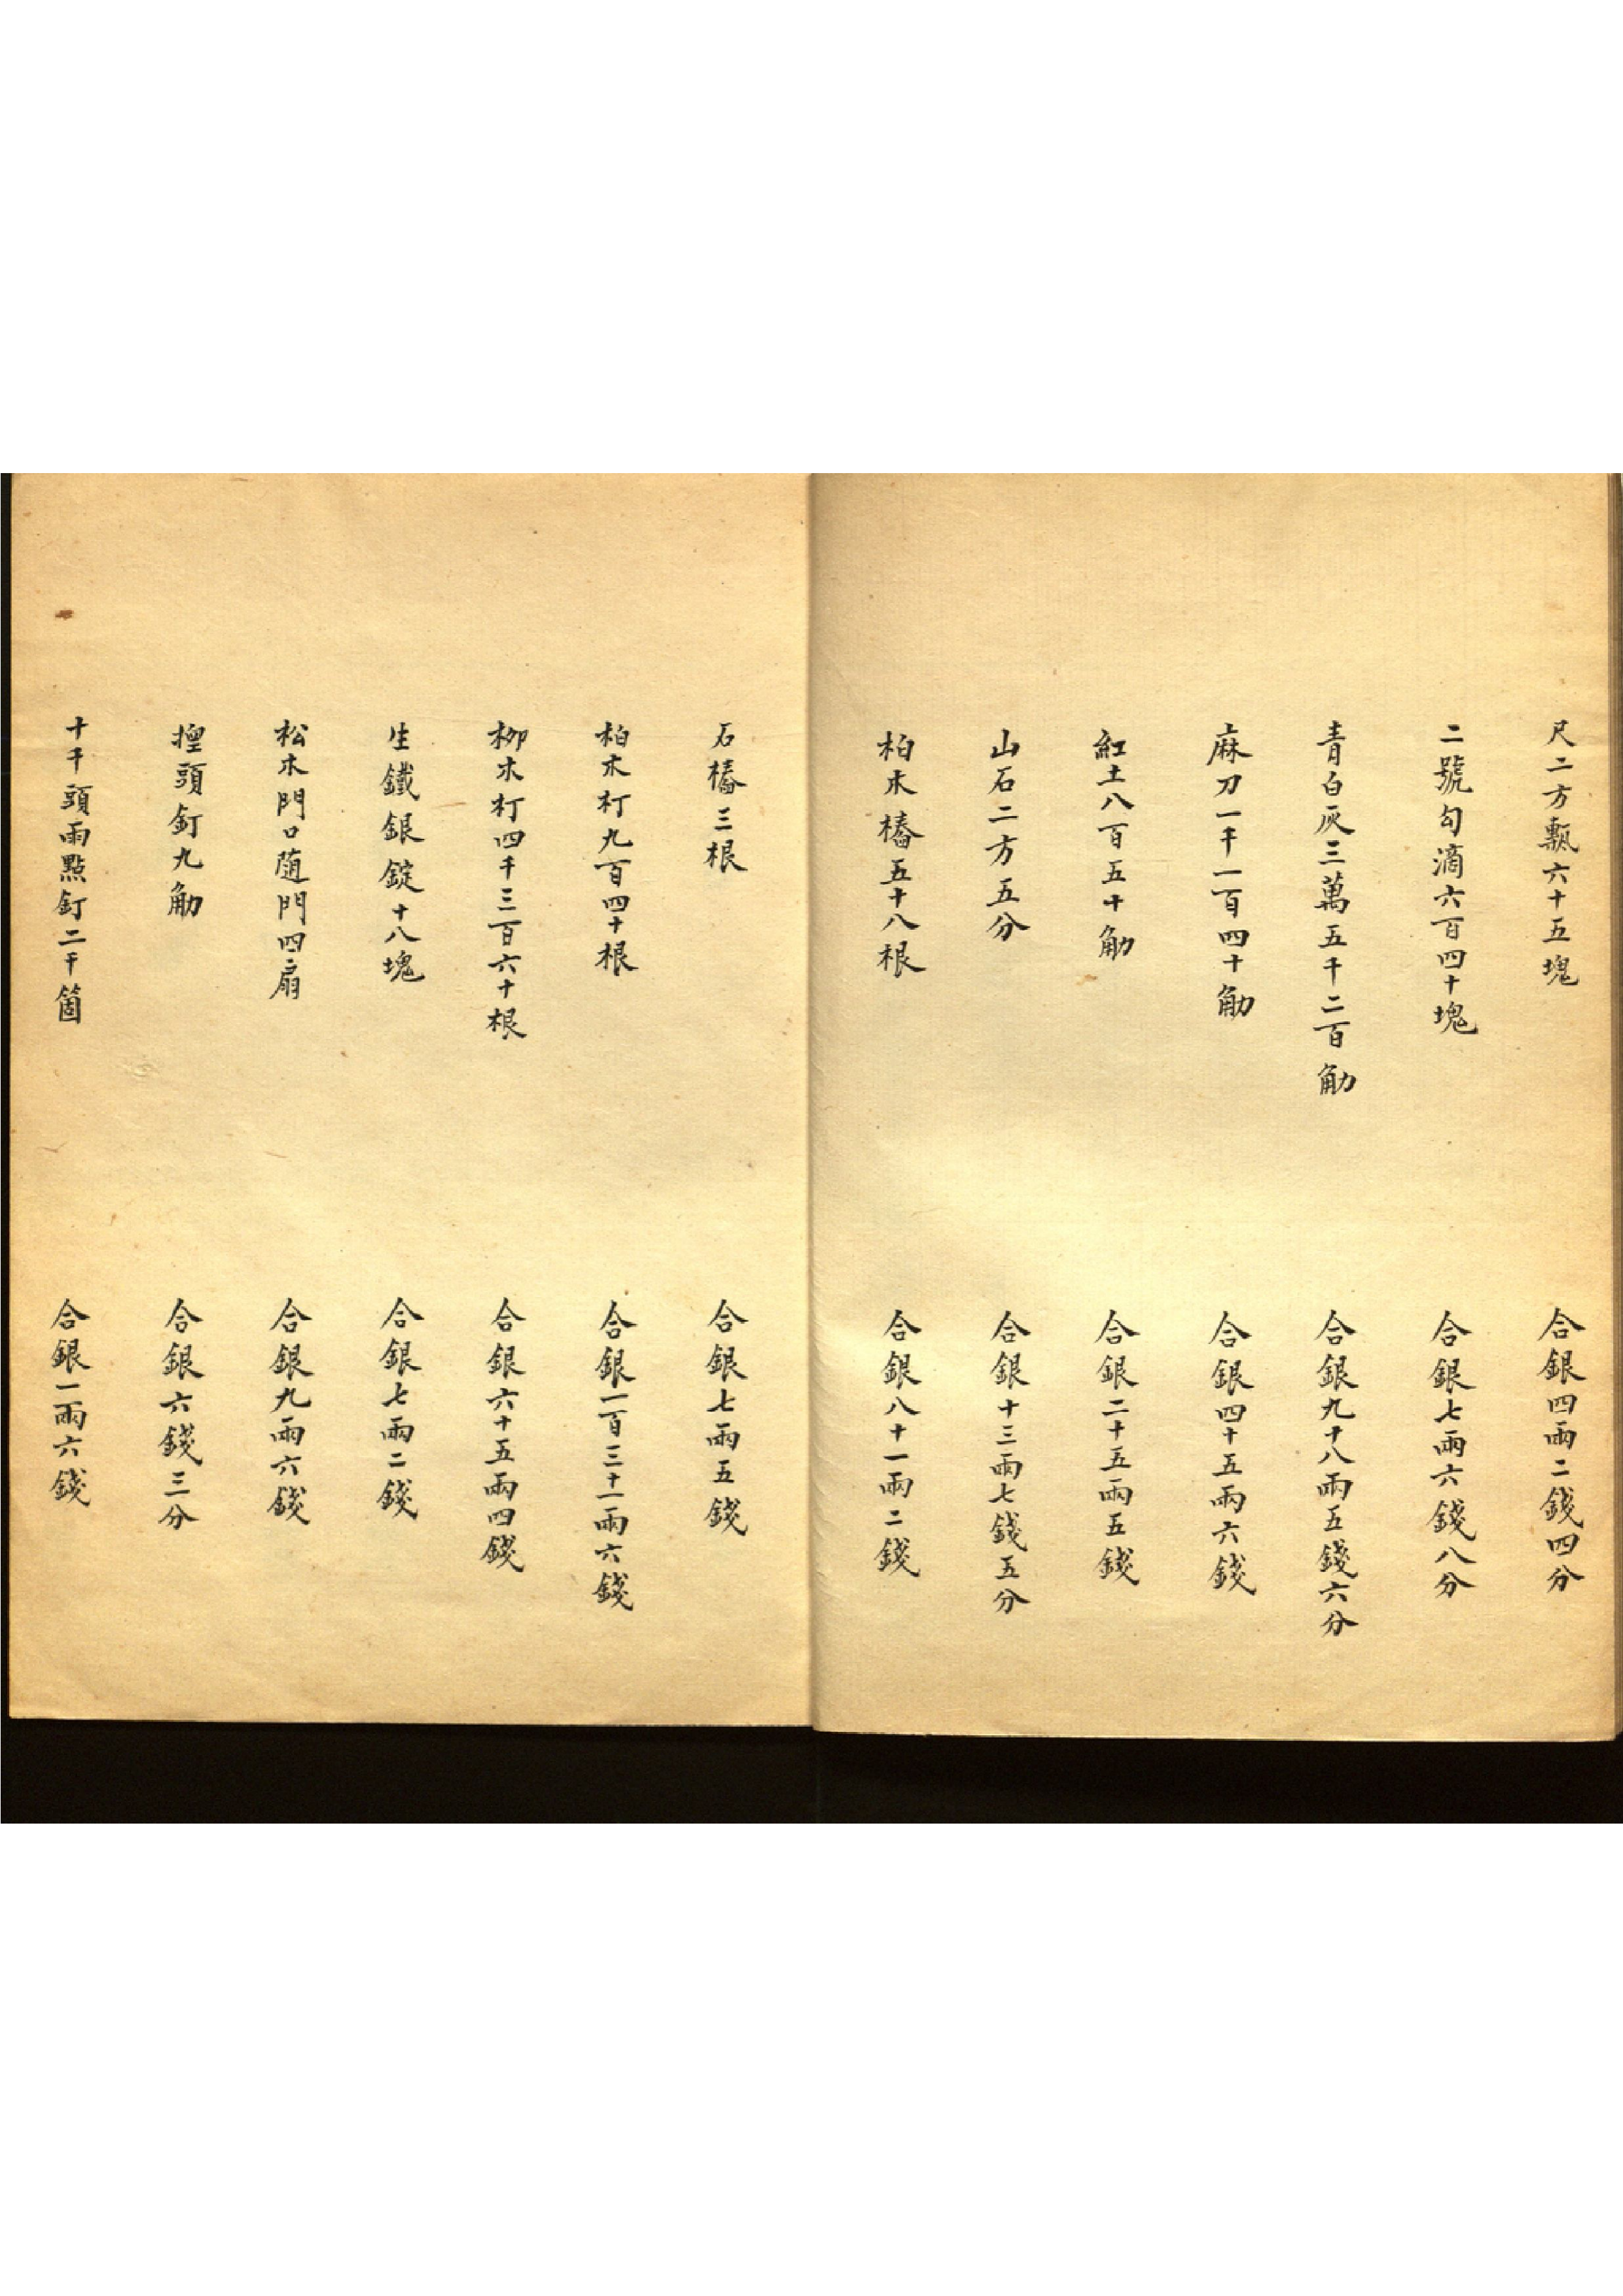 尺二方甎六十五塊
合銀四兩二錢四分
二號勾滴六百四十塊
合銀七兩六錢八分
青白灰三萬五千二百觔
合銀九十八兩五錢六分
麻刀一千一百四十觔
合銀四十五兩六錢
紅土八百五十觔
合銀二十五兩五錢
山石二方五分
合銀十三兩七錢五分
柏木樁五十八根
合銀八十一兩二錢
石樁三根
合銀七兩五錢
柏木朾九百四十根
合銀一百三十一兩六錢
柳木朾四千三百六十根
合銀六十五兩四錢
生鐵銀錠十八塊
合銀七兩二錢
松木門口隨門四扇
合銀九兩六錢
頭釘九觔
合銀六錢三分
十千頭雨點釘二千箇
合銀一兩六錢